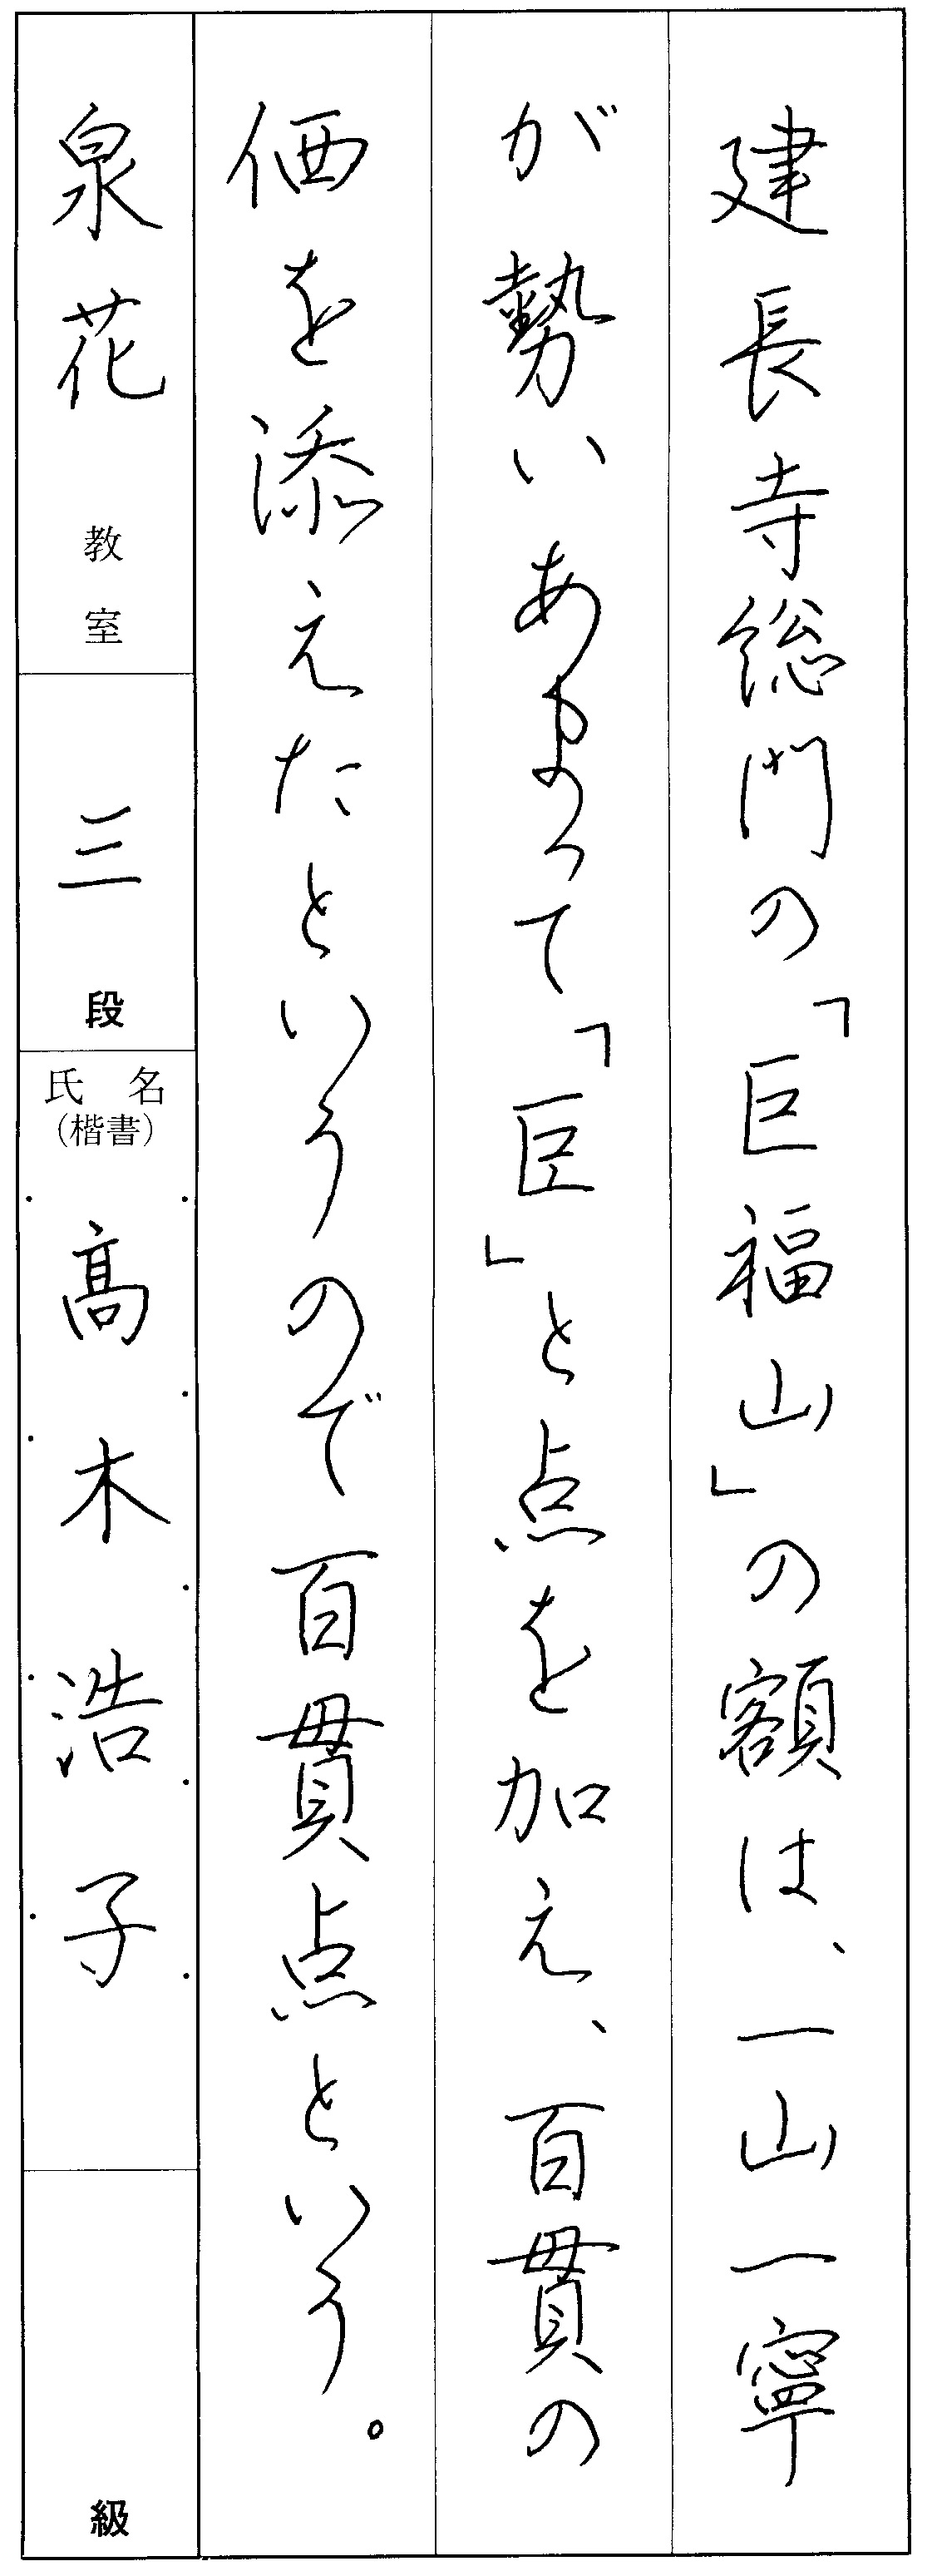 建長寺総門の「巨福山」の額は、一山一寧
が勢いあまって「臣」と点を加え、百貫の
価を添えたというので百貫点という。
泉花 教室 三 段 氏名(楷書) 髙木浩子 級